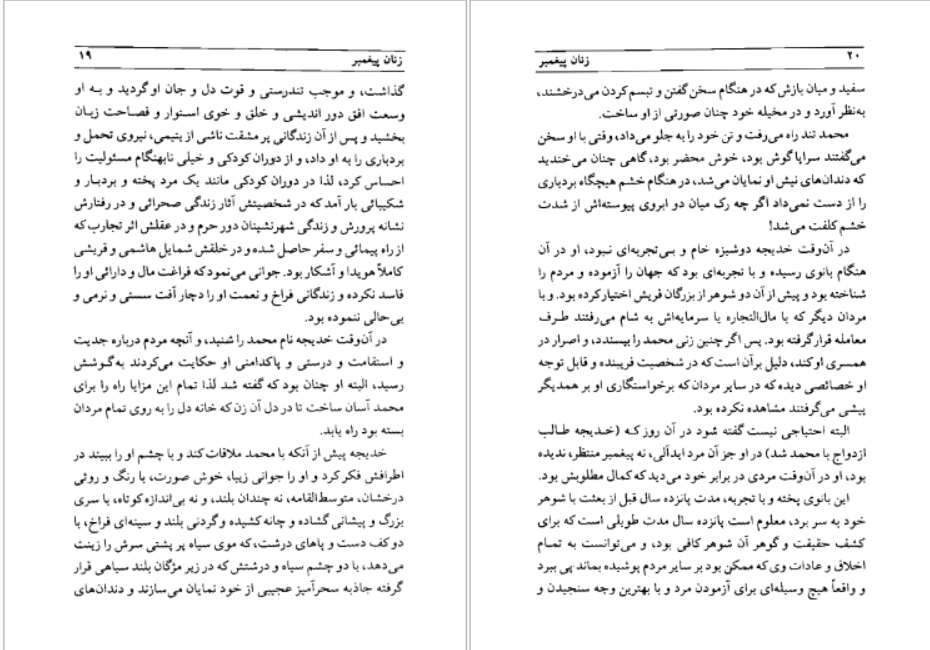 زنان پیغمبر ۱۹
گذاشت، و موجب تندرستی و قوت دل و جان او گردید و به او
وسعت افق دور اندیشی و خلق و خوی استوار و فصاحت زبان
بخشید و پس از آن زندگانی پر مشقت ناشی از یتیمی، نیروی تحمل و
بردباری را به او داد، و از دوران کودکی و خیلی نابهنگام مسئولیت را
احساس کرد، لذا در دوران کودکی مانند یک مرد پخته و بردبار و
شکیبائی بار آمد که در شخصیتش آثار زندگی صحرائی و در رفتارش
نشانه پرورش و زندگی شهرنشینان دور حرم و در عقلش اثر تجارب که
از راه پیمائی و سفر حاصل شده و در خلقش شمایل هاشمی و قریشی
کاملاً هویدا و آشکار بود. جوانی می‌نمود که فراغت مال و دارائی او را
فاسد نکرده و زندگانی فراخ و نعمت او را دچار آفت سستی و نرمی و
بی‌حالی ننموده بود.
در آن‌وقت خدیجه نام محمد را شنید، و آنچه مردم درباره جدیت
و استقامت و درستی و پاکدامنی او حکایت می‌کردند به‌گوشش
رسید، البته او چنان بود که گفته شد لذا تمام این مزایا راه را برای
محمد آسان ساخت تا در دل آن زن که خانه دل را به روی تمام مردان
بسته بود راه یابد.
خدیجه پیش از آنکه با محمد ملاقات کند و با چشم او را ببیند در
اطرافش فکر کرد و او را جوانی زیبا، خوش صورت، با رنگ و روئی
درخشان، متوسط‌القامه، نه چندان بلند، و نه بی‌اندازه کوتاه، با سری
بزرگ و پیشانی گشاده و چانه کشیده و گردنی بلند و سینه‌ای فراخ، با
دو کف دست و پاهای درشت، که موی سیاه پر پشتی سرش را زینت
می‌دهد، با دو چشم سیاه و درشتش که در زیر مژگان بلند سیاهی قرار
گرفته جاذبه سحرآمیز عجیبی از خود نمایان می‌سازند و دندان‌های
۲۰ زنان پیغمبر
سفید و میان بازش که در هنگام سخن گفتن و تبسم کردن می‌درخشند،
به‌نظر آورد و در مخیله خود چنان صورتی از او ساخت.
محمد تند راه می‌رفت و تن خود را به جلو می‌داد، وقتی با او سخن
می‌گفتند سراپا گوش بود، خوش محضر بود، گاهی چنان می‌خندید
که دندان‌های نیش او نمایان می‌شد، در هنگام خشم هیچگاه بردباری
را از دست نمی‌داد اگر چه رک میان دو ابروی پیوسته‌اش از شدت
خشم کلفت می‌شد!
در آن‌وقت خدیجه دوشیزه خام و بی‌تجربه‌ای نبود، او در آن
هنگام بانوی رسیده و با تجربه‌ای بود که جهان را آزموده و مردم را
شناخته بود و پیش از آن دو شوهر از بزرگان قریش اختیار کرده بود. و با
مردان دیگر که با مال‌التجاره یا سرمایه‌اش به شام می‌رفتند طرف
معامله قرار گرفته بود. پس اگر چنین زنی محمد را بپسندد، و اصرار در
همسری او کند، دلیل بر آن است که در شخصیت فریبنده و قابل توجه
او خصائصی دیده که در سایر مردان که برخواستگاری او بر همدیگر
پیشی می‌گرفتند مشاهده نکرده بود.
البته احتیاجی نیست گفته شود در آن روز که (خدیجه طالب
ازدواج با محمد شد) در او جز آن مرد ایدآلی، نه پیغمبر منتظر، ندیده
بود، او در آن‌وقت مردی در برابر خود می‌دید که کمال مطلوبش بود.
این بانوی پخته و با تجربه، مدت پانزده سال قبل از بعثت با شوهر
خود به سر برد، معلوم است پانزده سال مدت طویلی است که برای
کشف حقیقت و گوهر آن شوهر کافی بود، و می‌توانست به تمام
اخلاق و عادات وی که ممکن بود بر سایر مردم پوشیده بماند پی ببرد
و واقعاً هیچ وسیله‌ای برای آزمودن مرد و با بهترین وجه سنجیدن و